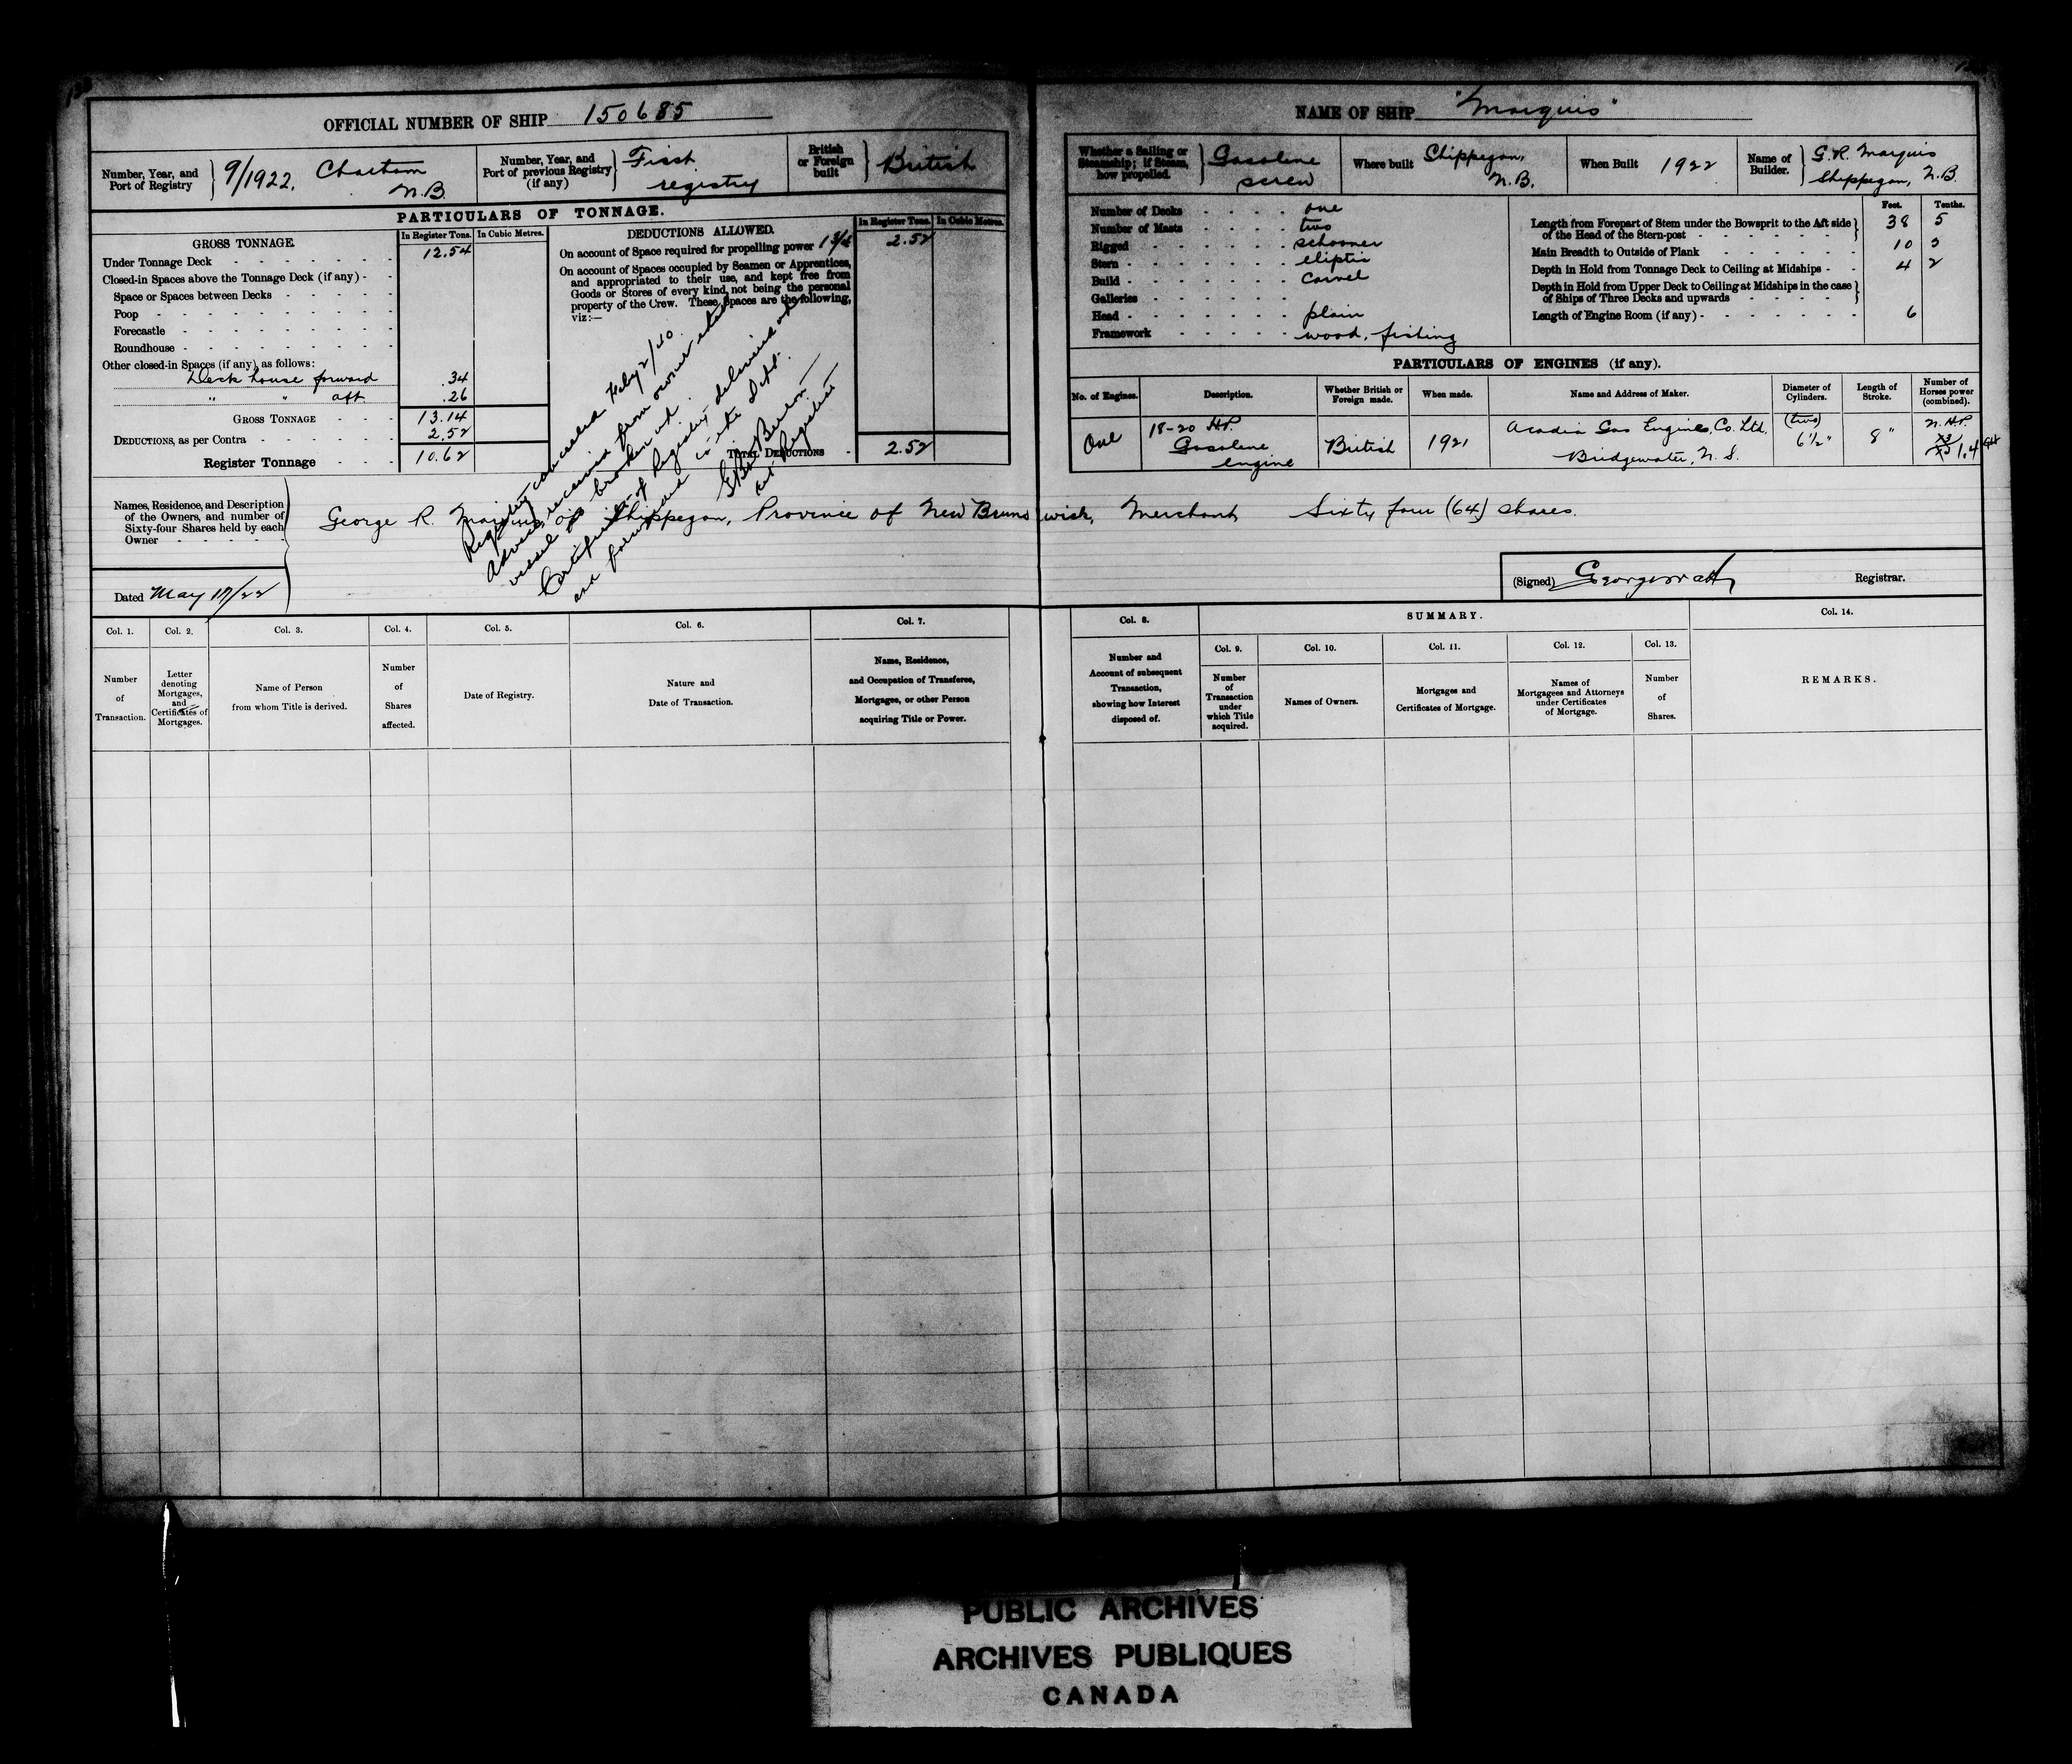 OFFICIAL NUMBER OF SHIP 150685
Number, Year, and
Port of Registry
9/1922. Chatham
N.B.
Number, Year, and
Port of previous Registry
(if any)
First
registry
British
or Foreign
built
British
PARTICULARS OF TONNAGE.
GROSS TONNAGE.
In Register Tons. In Cubic Metres.
Under Tonnage Deck 12.54
Closed-in Spaces above the Tonnage Deck (if any)
Space or Spaces between Decks
Poop
Forecastle
Roundhouse
Other closed-in Spaces (if any), as follows:
Deck house forward .34
" " aft .26
GROSS TONNAGE 13.14
DEDUCTIONS, as per Contra 2.52
Register Tonnage 10.62
DEDUCTIONS ALLOWED.
In Register Tons. In Cubic Metres.
On account of Space required for propelling power 2.52
On account of Spaces occupied by Seamen or Apprentices,
and appropriated to their use, and kept free from
Goods or Stores of every kind, not being the personal
property of the Crew. These Spaces are the following,
viz:—
TOTAL DEDUCTIONS 2.52
Registry cancelled Feby 2/40.
Advice received from owner
vessel broken up.
Certificate of Registry delivered up
and forwarded to the Dept.
Registrar
Names, Residence, and Description
of the Owners, and number of
Sixty-four Shares held by each
Owner
George R. Marquis of Shippegan, Province of New Brunswick, Merchant Sixty four (64) shares.
Dated May 17/22
NAME OF SHIP "Marquis"
Whether a Sailing or
Steamship; if Steam,
how propelled.
Gasolene
screw
Where built
Shippegan,
N.B.
When Built 1922
Name of
Builder.
G.R. Marquis
Shippegan, N.B.
Number of Decks one
Number of Masts two
Rigged schooner
Stern eliptic
Build Carvel
Galleries
Head plain
Framework wood, fishing
Feet. Tenths.
Length from Forepart of Stem under the Bowsprit to the Aft side
of the Head of the Stern-post 38 5
Main Breadth to Outside of Plank 10 5
Depth in Hold from Tonnage Deck to Ceiling at Midships 4 2
Depth in Hold from Upper Deck to Ceiling at Midships in the case
of Ships of Three Decks and upwards
Length of Engine Room (if any) 6
PARTICULARS OF ENGINES (if any).
No. of Engines.
Description.
Whether British or
Foreign made.
When made.
Name and Address of Maker.
Diameter of
Cylinders.
Length of
Stroke.
Number of
Horses power
(combined).
One
18-20 H.P.
Gasolene
engine
British
1921
Acadia Gas Engines, Co. Ltd.
Bridgewater, N.S.
(two)
6½"
8"
N.H.P.
1.4
(Signed) Registrar.
Col. 1.
Number
of
Transaction.
Col. 2.
Letter
denoting
Mortgages,
and
Certificates of
Mortgages.
Col. 3.
Name of Person
from whom Title is derived.
Col. 4.
Number
of
Shares
affected.
Col. 5.
Date of Registry.
Col. 6.
Nature and
Date of Transaction.
Col. 7.
Name, Residence,
and Occupation of Transferee,
Mortgagee, or other Person
acquiring Title or Power.
Col. 8.
Number and
Account of subsequent
Transaction,
showing how Interest
disposed of.
SUMMARY.
Col. 9.
Number
of
Transaction
under
which Title
acquired.
Col. 10.
Names of Owners.
Col. 11.
Mortgages and
Certificates of Mortgage.
Col. 12.
Names of
Mortgagees and Attorneys
under Certificates
of Mortgage.
Col. 13.
Number
of
Shares.
Col. 14.
REMARKS.
PUBLIC ARCHIVES
ARCHIVES PUBLIQUES
CANADA